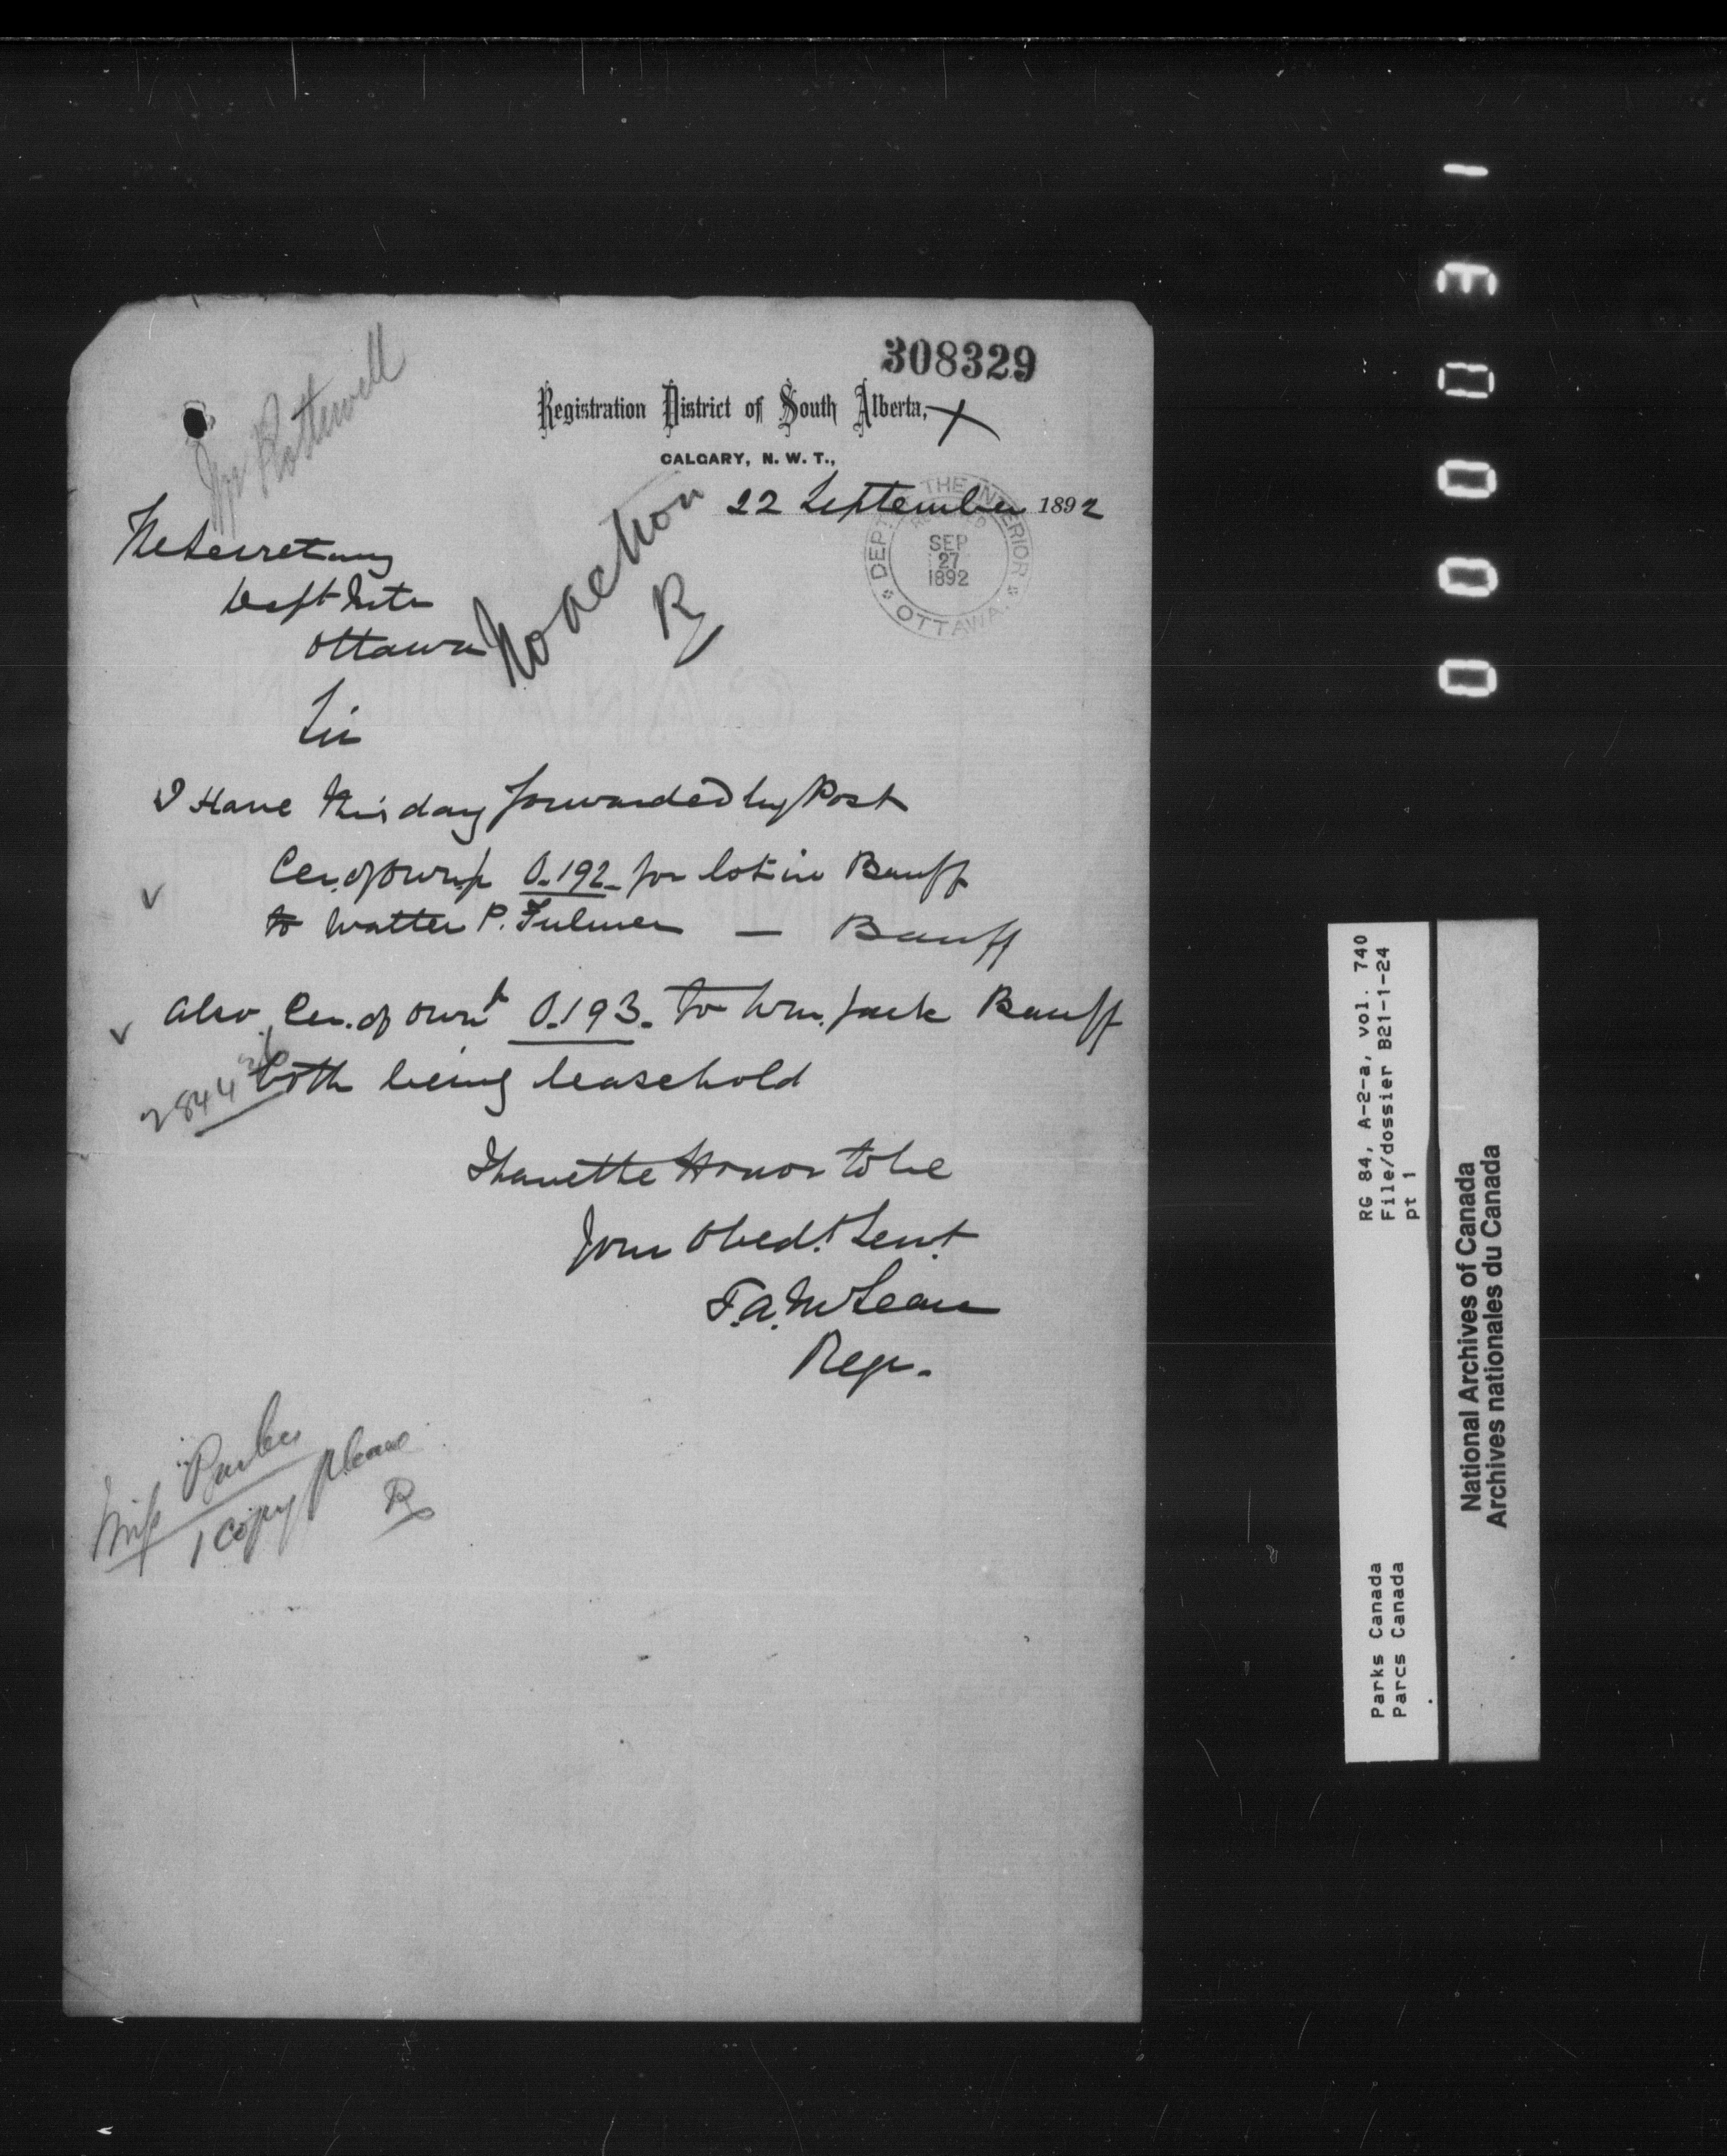 308329
Registration District of South Alberta,
CALGARY, N. W. T.,
22 September 1892
DEPT. THE INTERIOR
SEP
27
1892
OTTAWA.
Mr Rothwell
The Secretary
Dept Inter
Ottawa
No action
R
Sir
I Have this day forwarded by Post
Cer. of Owrsp O.192. for lot in Banff
to Walter P. Fulmer — Banff
also Cer. of Own O.193. to Wm. Jack Banff
both being leasehold
I have the Honor to be
Your Obedt. Servt.
F.A. McLean
Regr.
Miss
1 copy please
R
RG 84, A-2-a, vol. 740
File/dossier B21-1-24
pt 1
Parks Canada
Parcs Canada
National Archives of Canada
Archives nationales du Canada
000031